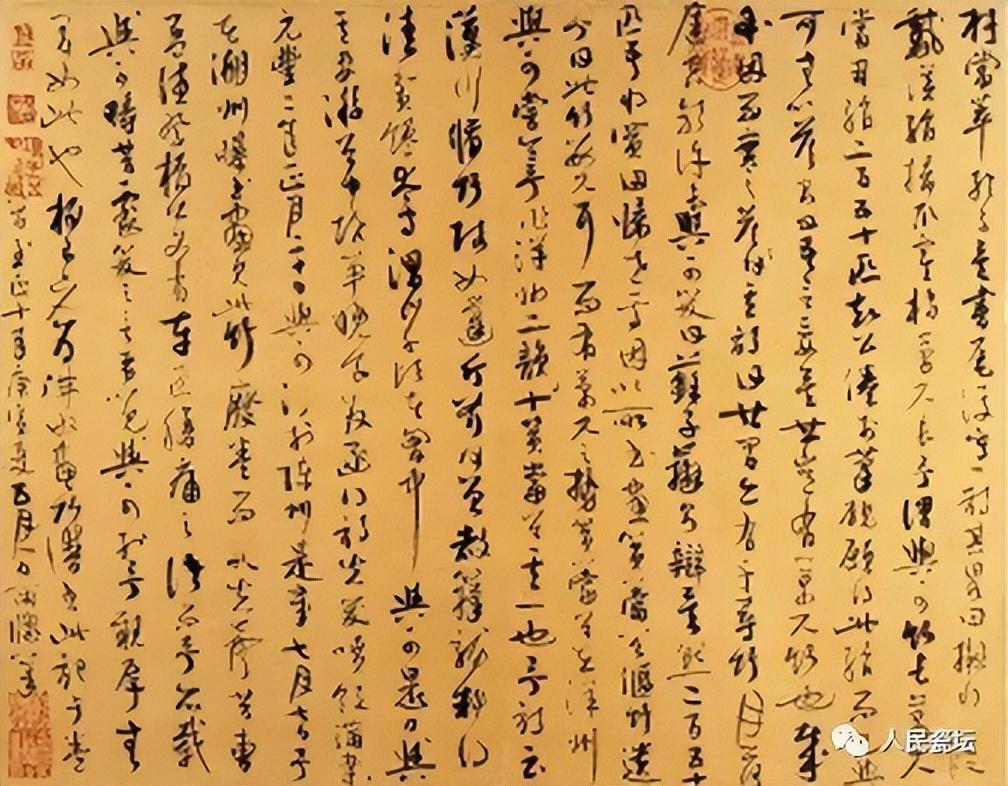 材當萃於子矣書尾復寫一詩其略曰擬將一段
鵝溪絹掃取寒梢萬尺長予謂與可竹長萬尺
當用絹二百五十匹知公倦於筆硯願得此絹而已與
可無以答則曰吾言妄矣世豈有萬尺竹也哉
余因而實之答其詩曰世間亦有千尋竹月落
庭空影許長與可笑曰蘇子辯則辯矣然二百五十
匹吾將買田歸老焉因以所畫篔簹谷偃竹遺
予曰此竹數尺耳而有萬尺之勢篔簹谷在洋州
與可嘗令予作洋州三十詠篔簹谷其一也予詩云
漢川脩竹賤如蓬斤斧何曾赦籜龍料得
清貧饞太守渭濱千畝在胸中與可是日與
其妻游谷中燒筍晚食發函得詩失笑噴飯滿案
元豐二年正月二十日與可沒於陳州是歲七月七日予
在湖州曝書畫見此竹廢卷而哭失聲昔曹
孟德祭橋公文有車過腹痛之語而予亦載
與可疇昔戲笑之言者以見與可於予親厚無
間如此也
至正十年庚寅夏五月
人民瓷坛